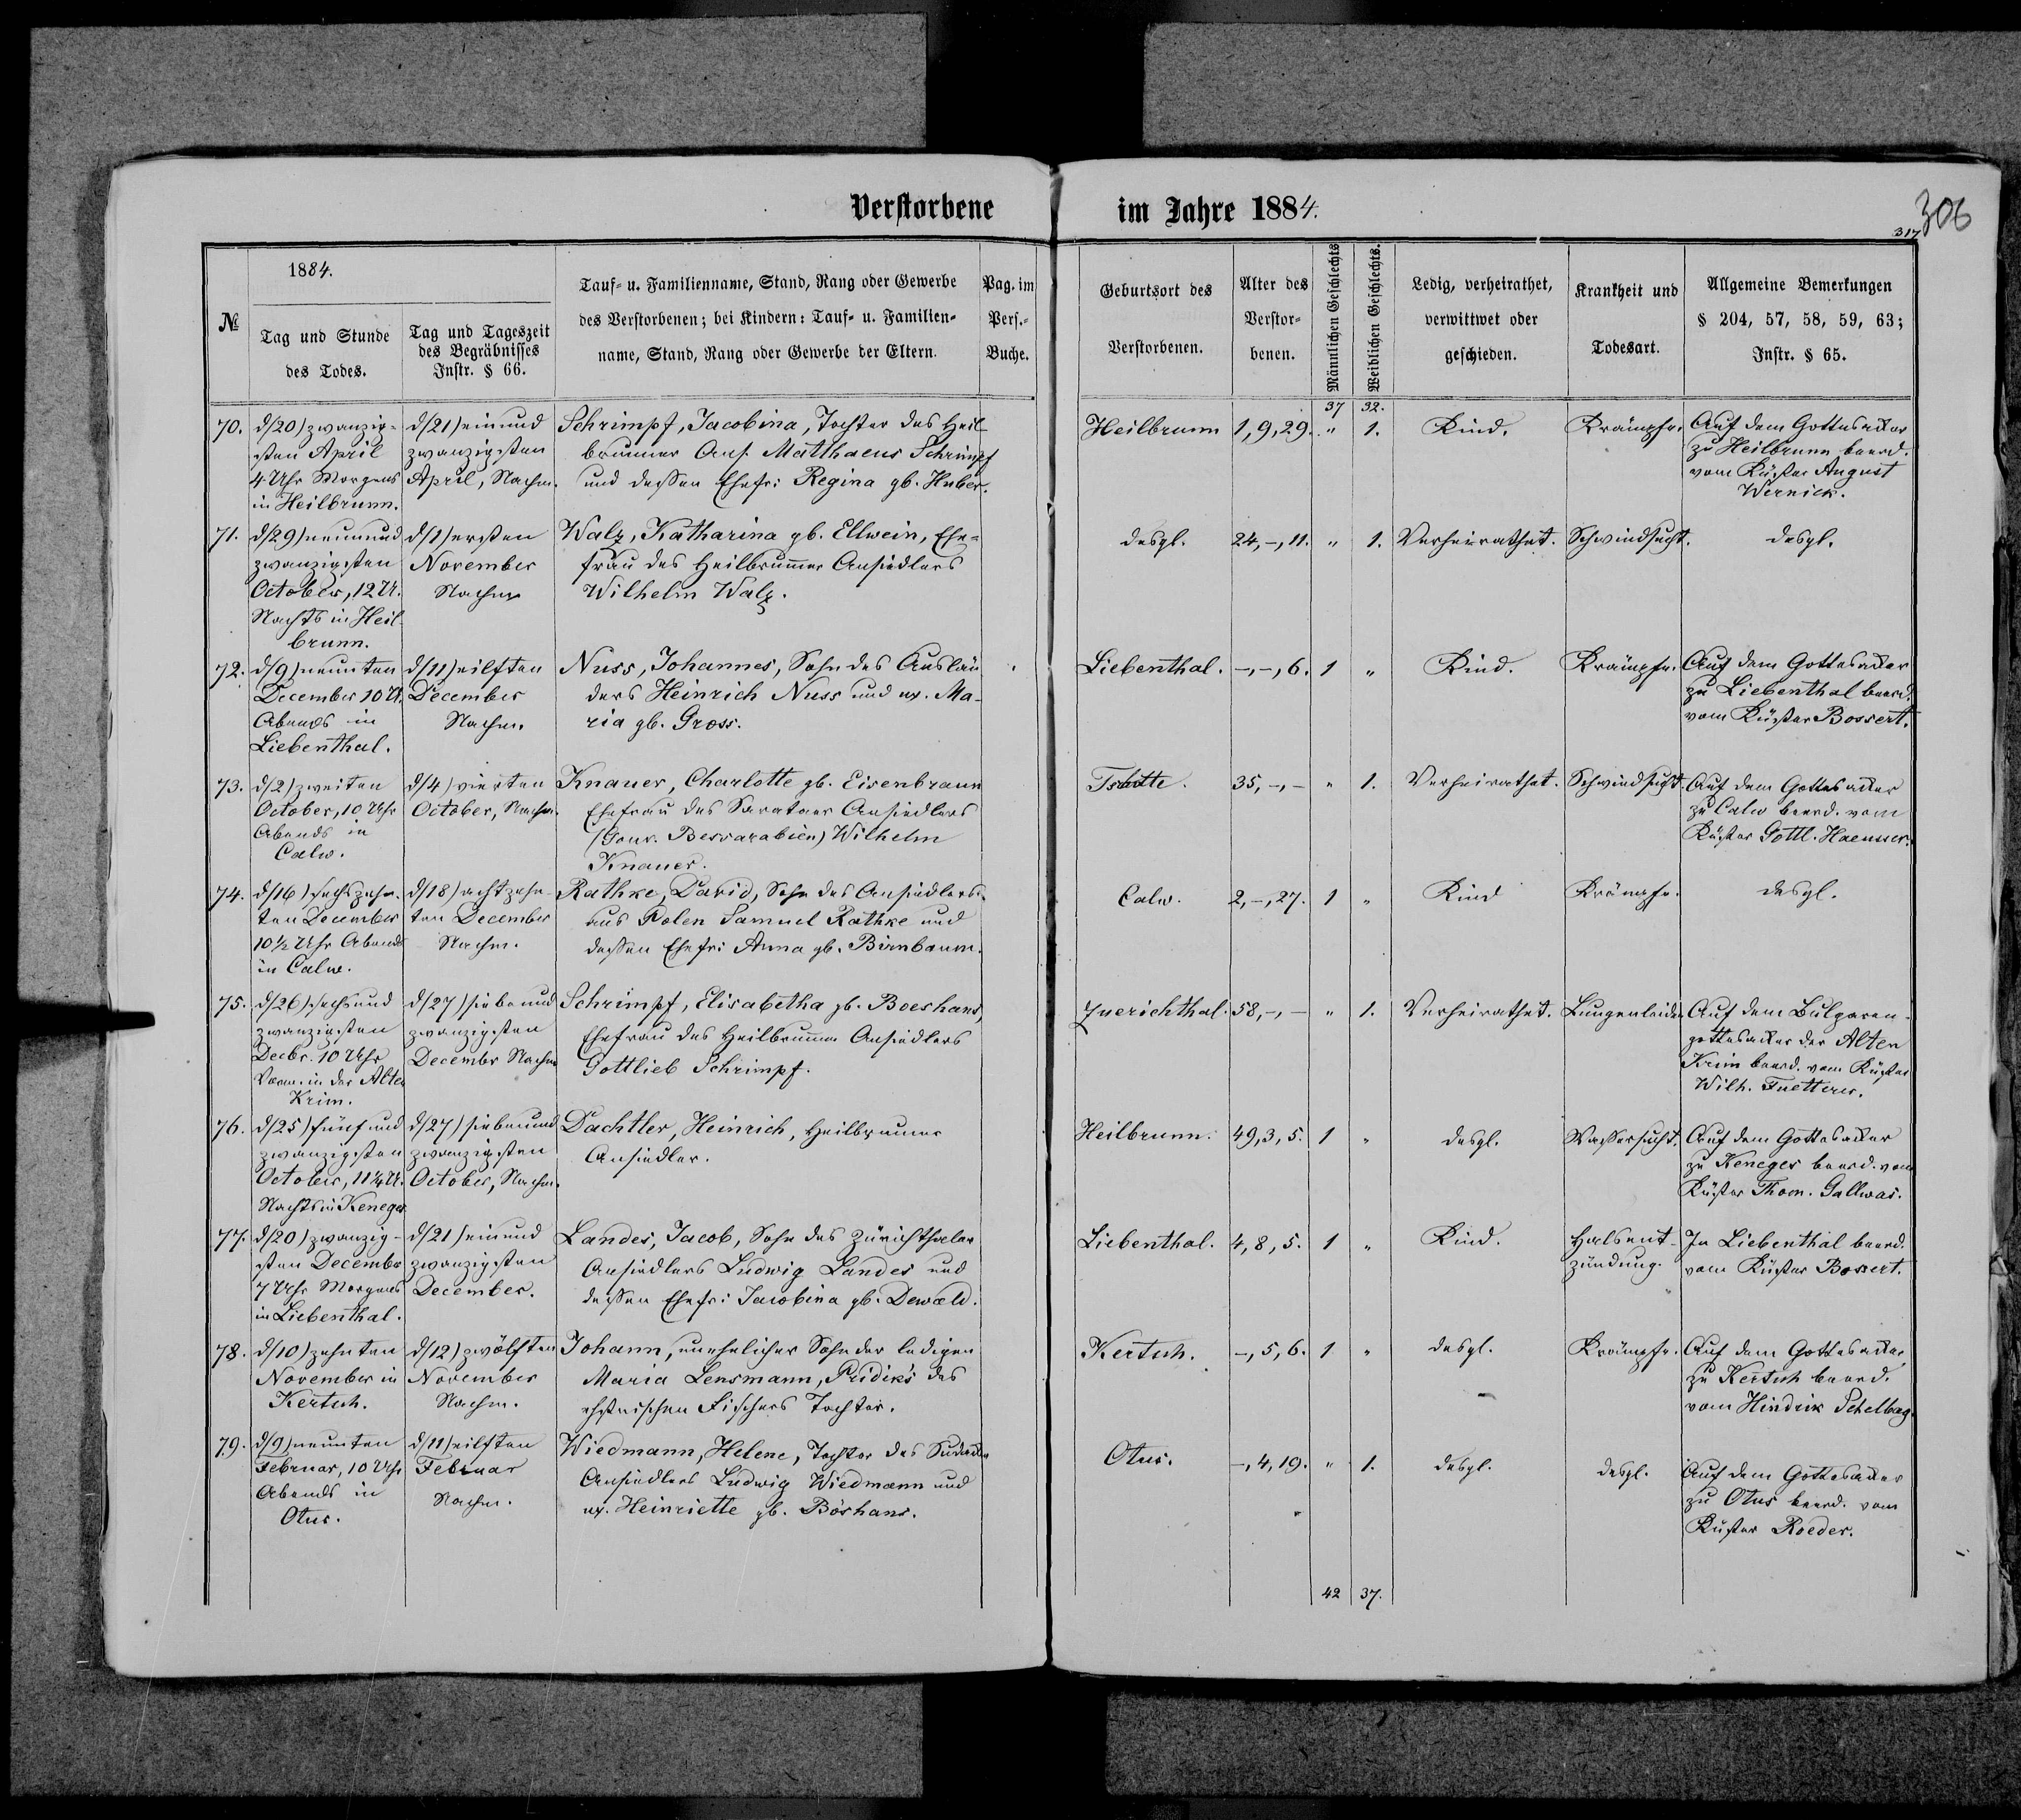 Verstorbene im Jahre 1884.
306
317
№
1884.
Tag und Stunde
des Todes.
Tag und Tageszeit
des Begräbnisses
Instr. § 66.
Tauf- u. Familienname, Stand, Rang oder Gewerbe
des Verstorbenen; bei Kindern: Tauf- u. Familien-
name, Stand, Rang oder Gewerbe der Eltern.
Pag. im
Pers.-
Buche.
Geburtsort des
Verstorbenen.
Alter des
Verstor-
benen.
Männlichen Geschlechts
Weiblichen Geschlechts.
Ledig, verheirathet,
verwittwet oder
geschieden.
Krankheit und
Todesart.
Allgemeine Bemerkungen
§ 204, 57, 58, 59, 63;
Instr. § 65.
37 32.
70.
d/20) zwanzig-
sten April
4 Uhr Morgens
in Heilbrunn.
d/21) einund
zwanzigsten
April, Nachm.
Schrimpf, Jacobina, Tochter des Heil
brunner Ans. Matthaeus Schrimpf
und dessen Ehefr: Regina gb. Huber.
Heilbrunn
1,9,29.
" 1.
Kind.
Krämpfe.
Auf dem Gottesacker
zu Heilbrunn beerd.
vom Küster August
Wernick.
71.
d/29) neunund
zwanzigsten
October, 12 U.
Nachts in Heil-
brunn.
d/1) ersten
November
Nachm.
Walz, Katharina gb. Ellwein, Ehe-
frau des Heilbrunner Ansiedlers
Wilhelm Walz.
desgl.
24,-,11.
" 1.
Verheirathet.
Schwindsucht.
desgl.
72.
d/9) neunten
December 10 U.
Abends in
Liebenthal.
d/11) eilften
December
Nachm.
Nuss, Johannes, Sohn des Auslän
ders Heinrich Nuss und ux. Ma-
ria gb. Gross.
Liebenthal.
-,-,6.
1 "
Kind.
Krämpfe.
Auf dem Gottesacker
zu Liebenthal beerd.
vom Küster Bossert.
73.
d/2) zweiten
October, 10 Uhr
Abends in
Calw.
d/4) vierten
October, Nachm.
Knauer, Charlotte gb. Eisenbraun
Ehefrau des Sarataer Ansiedlers
(Gouv. Bessarabien) Wilhelm
Knauer.
35,-,-
" 1.
Verheirathet.
Schwindsucht.
Auf dem Gottesacker
zu Calw beerd. vom
Küster Gottl. Haeusser.
74.
d/16) sechszehn-
ten December
10½ Uhr Abends
in Calw.
d/18) achtzehn-
ten December
Nachm.
Rathke, David, Sohn des Ansiedlers
aus Polen Samuel Rathke und
dessen Ehefr: Anna gb. Birnbaum.
Calw.
2,-,27.
1 "
Kind
Krämpfe.
desgl.
75.
d/26) sechsund
zwanzigsten
Decbr. 10 Uhr
Vorm. in der Alten
Krim.
d/27) siebenund
zwanzigsten
December Nachm
Schrimpf, Elisabetha gb. Boeshans,
Ehefrau des Heilbrunner Ansiedlers
Gottlieb Schrimpf.
Zuerichthal.
58,-,-
" 1.
Verheirathet.
Lungenleiden
Auf dem Bulgaren-
gottesacker der Alten
Krim beerd. vom Küster
Wilh. Fuetterer.
76.
d/25) fünfund
zwanzigsten
October, 11¼ U.
Nachts in Keneges
d/27) siebenund
zwanzigsten
October, Nachm.
Dachtler, Heinrich, Heilbrunner
Ansiedler.
Heilbrunn.
49,3,5.
1 "
desgl.
Wassersucht.
Auf dem Gottesacker
zu Keneges beerd. vom
Küster Thom. Gallwas.
77.
d/20) zwanzig-
sten December
7 Uhr Morgens
in Liebenthal.
d/21) einund
zwanzigsten
December.
Landes, Jacob, Sohn des Zürichthaler
Ansiedlers Ludwig Landes und
dessen Ehefr: Jacobina gb. Dewald.
Liebenthal.
4,8,5.
1 "
Kind.
Halsent-
zündung.
In Liebenthal beerd.
vom Küster Bossert.
78.
d/10) zehnten
November in
Kertsch.
d/12) zwölften
November
Nachm.
Johann, unehelicher Sohn der ledigen
Maria Lensmann, Pridiks des
ehstnischen Fischers Tochter.
Kertsch.
-,5,6.
1 "
desgl.
Krämpfe.
Auf dem Gottesacker
zu Kertsch beerd.
vom Hindrik
79.
d/9) neunten
Februar, 10 Uhr
Abends in
Otus.
d/11) eilften
Februar
Nachm.
Wiedmann, Helene, Tochter des Sudaker
Ansiedlers Ludwig Wiedmann und
ux. Heinriette gb. Böshans.
Otus.
-,4,19.
" 1.
desgl.
desgl.
Auf dem Gottesacker
zu Otus beerd. vom
Küster Roeder.
42 37.